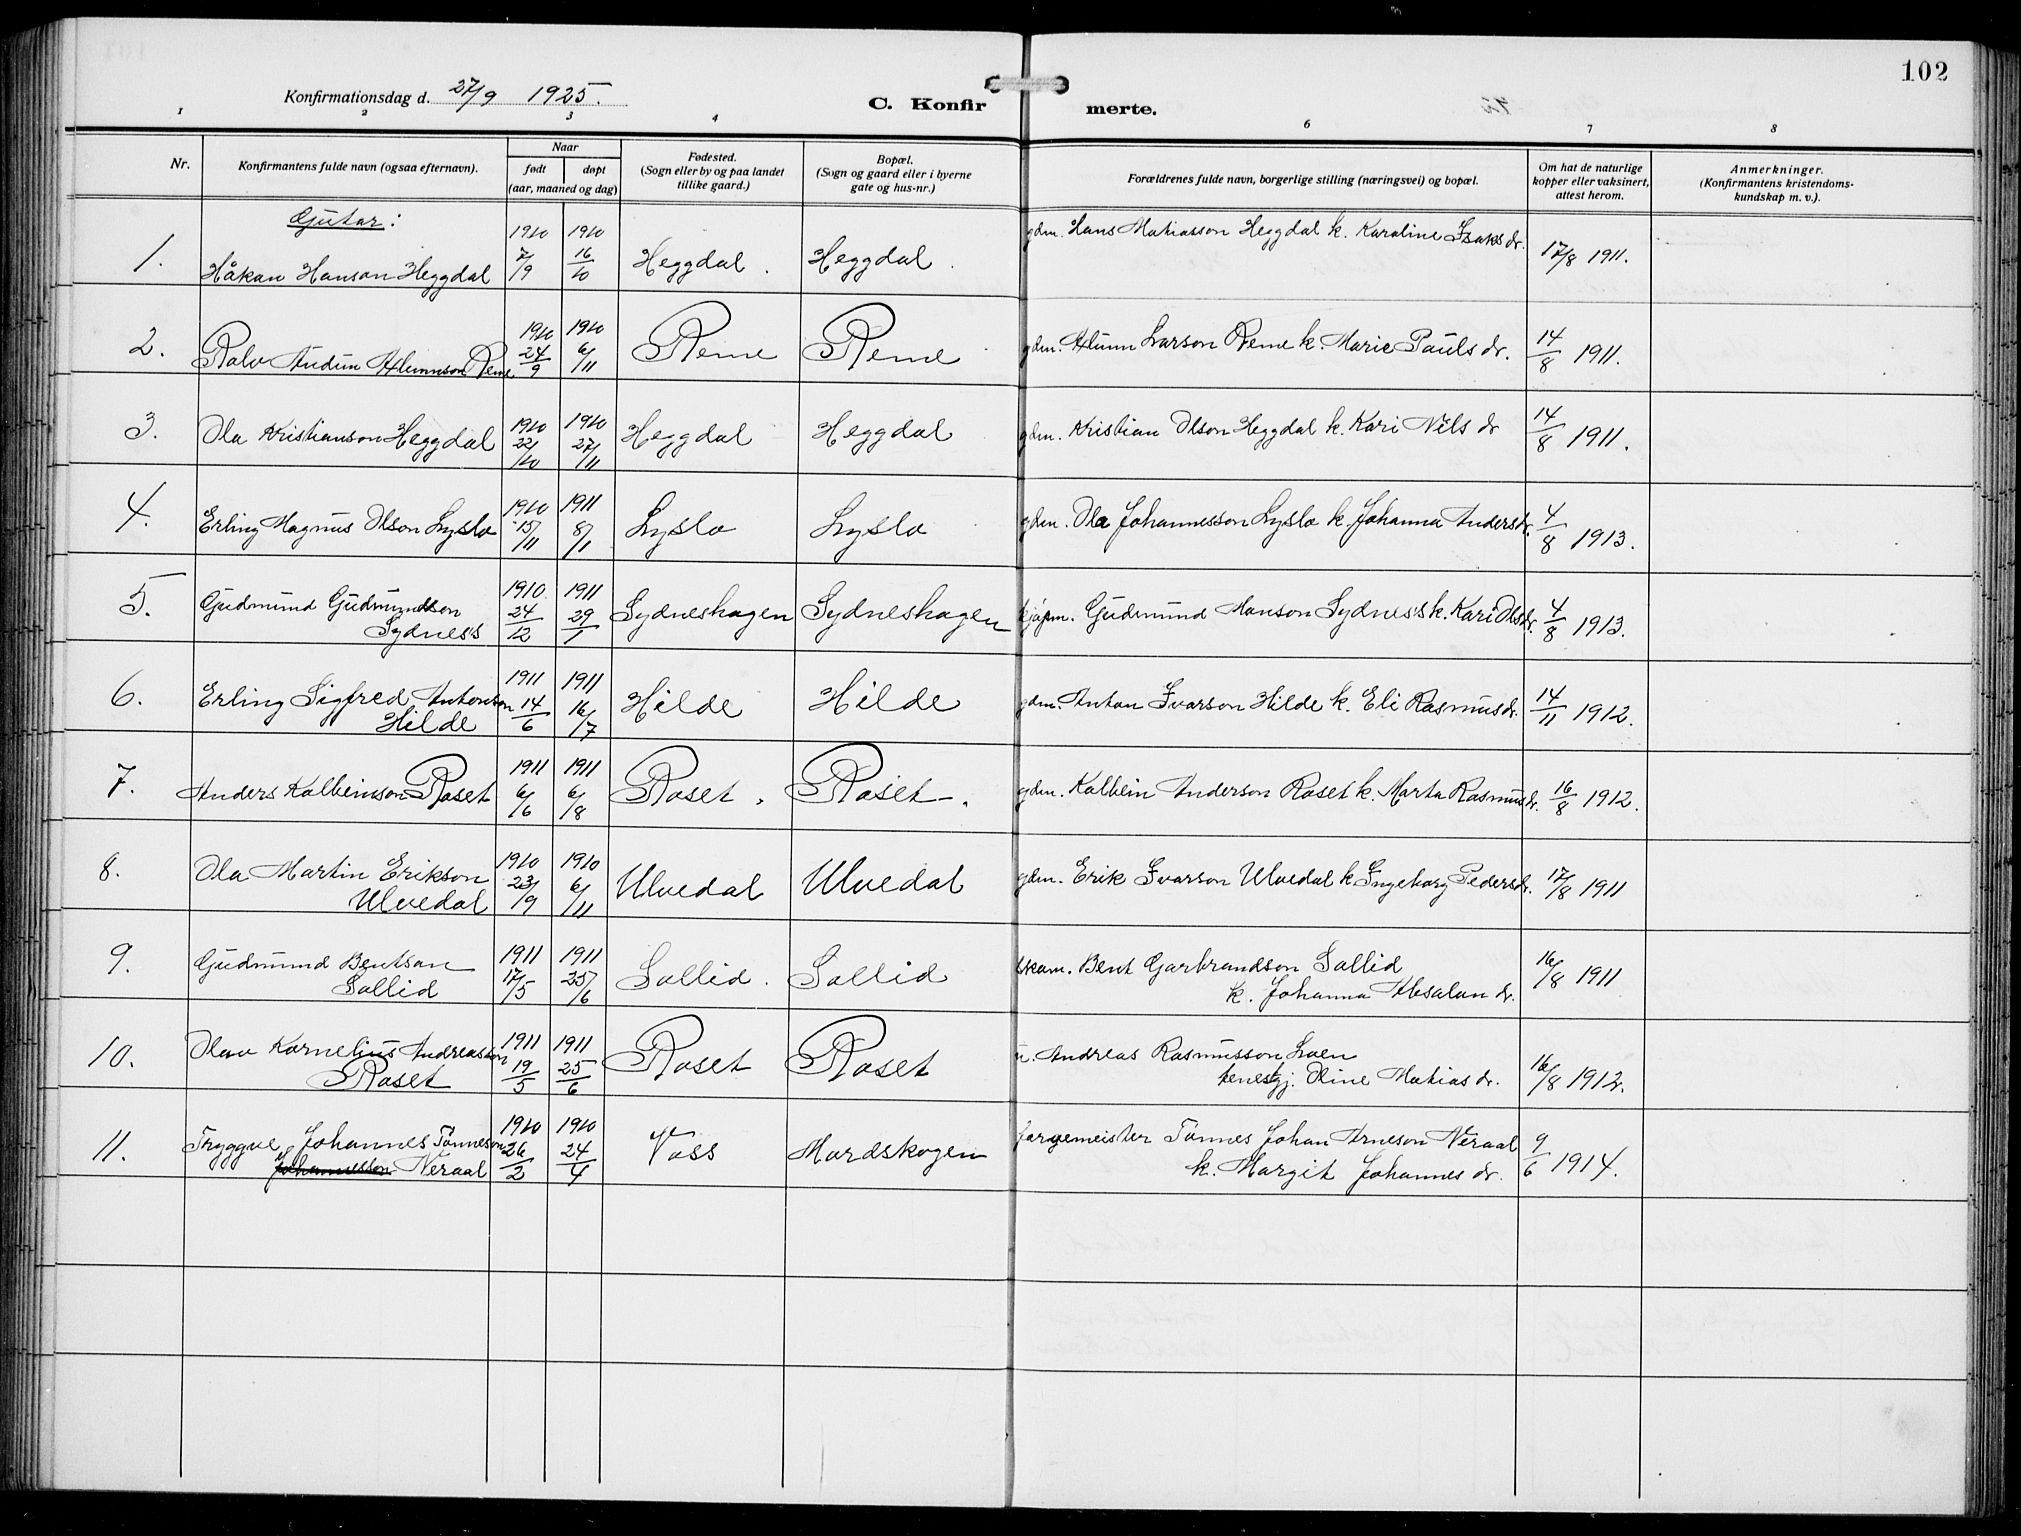 102
Konfirmationsdag d. 27/9 1925.
C. Konfirmerte.
1 2 3 4 6 7 8
Nr.
Konfirmantens fulde navn (ogsaa efternavn).
Naar
født døpt
(aar, maaned og dag)
Fødested.
(Sogn eller by og paa landet
tillike gaard.)
Bopæl.
(Sogn og gaard eller i byerne
gate og hus-nr.)
Forældrenes fulde navn, borgerlige stilling (næringsvei) og bopæl.
Om hat de naturlige
kopper eller vaksinert,
attest herom.
Anmerkninger.
(Konfirmantens kristendoms-
kundskap m. v.).
Gutar:
1. Håkan Hanson Heggdal 1910 7/9 1910 16/10 Heggdal. Heggdal. gdm. Hans Matiasson Heggdal k. Karoline Isaks dr. 17/8 1911.
2. Rolv Audun Alunnson Reme 1910 24/9 1910 6/11 Reme Reme gdm. Alunn Larson Reme k. Marie Pauls dr. 14/8 1911.
3. Ola Kristianson Heggdal 1910 22/10 1910 27/11 Heggdal Heggdal gdm. Kristian Olson Heggdal k. Kari Nils dr 14/8 1911.
4. Erling Magnus Olson Lyslo 1910 15/11 1911 8/1 Lyslo Lyslo gdm. Ola Johannesson Lyslo k. Johanna Anders dr. 4/8 1913.
5. Gudmund Gudmundson
Sydnes's 1910. 24/12 1911 29/1 Sydneshagen Sydneshagen kjøpm. Gudmund Monson Sydnes's k. Kari Ols dr. 4/8 1913.
6. Erling Sigfred Antonson
Hilde 1911 14/6 1911 16/7 Hilde Hilde gdm. Anton Ivarson Hilde k. Eli Rasmus dr. 14/11 1912.
7. Anders Kolbeinson Roset 1911 6/6 1911 6/8 Roset. Roset. gdm. Kolbein Anderson Roset k. Marta Rasmus dr. 16/8 1912.
8. Ola Martin Erikson
Ulvedal 1910 23/9 1910 6/11 Ulvedal Ulvedal gdm. Erik Ivarson Ulvedal k Ingeborg Peders dr. 17/8 1911
9. Gudmund Bentson
Sollid 1911 17/5 1911 25/6 Sollid. Sollid skom. Bent Garbrandson Sollid
k. Johanna Absalon dr. 16/8 1911
10. Olav Kornelius Andreasson
Roset 1911 19/5 1911 25/6 Roset Roset u. Andreas Rasmusson Loen
tenestgj. Oline Matias dr. 16/8 1912.
11. Tryggve Johannes Tönneson
Johannesson Neraal 1910 26/2 1910 24/4 Voss Mardskogen fargemeister Tönnes Johan Arneson Neraal
k. Margit Johannes dr. 9/6 1914.